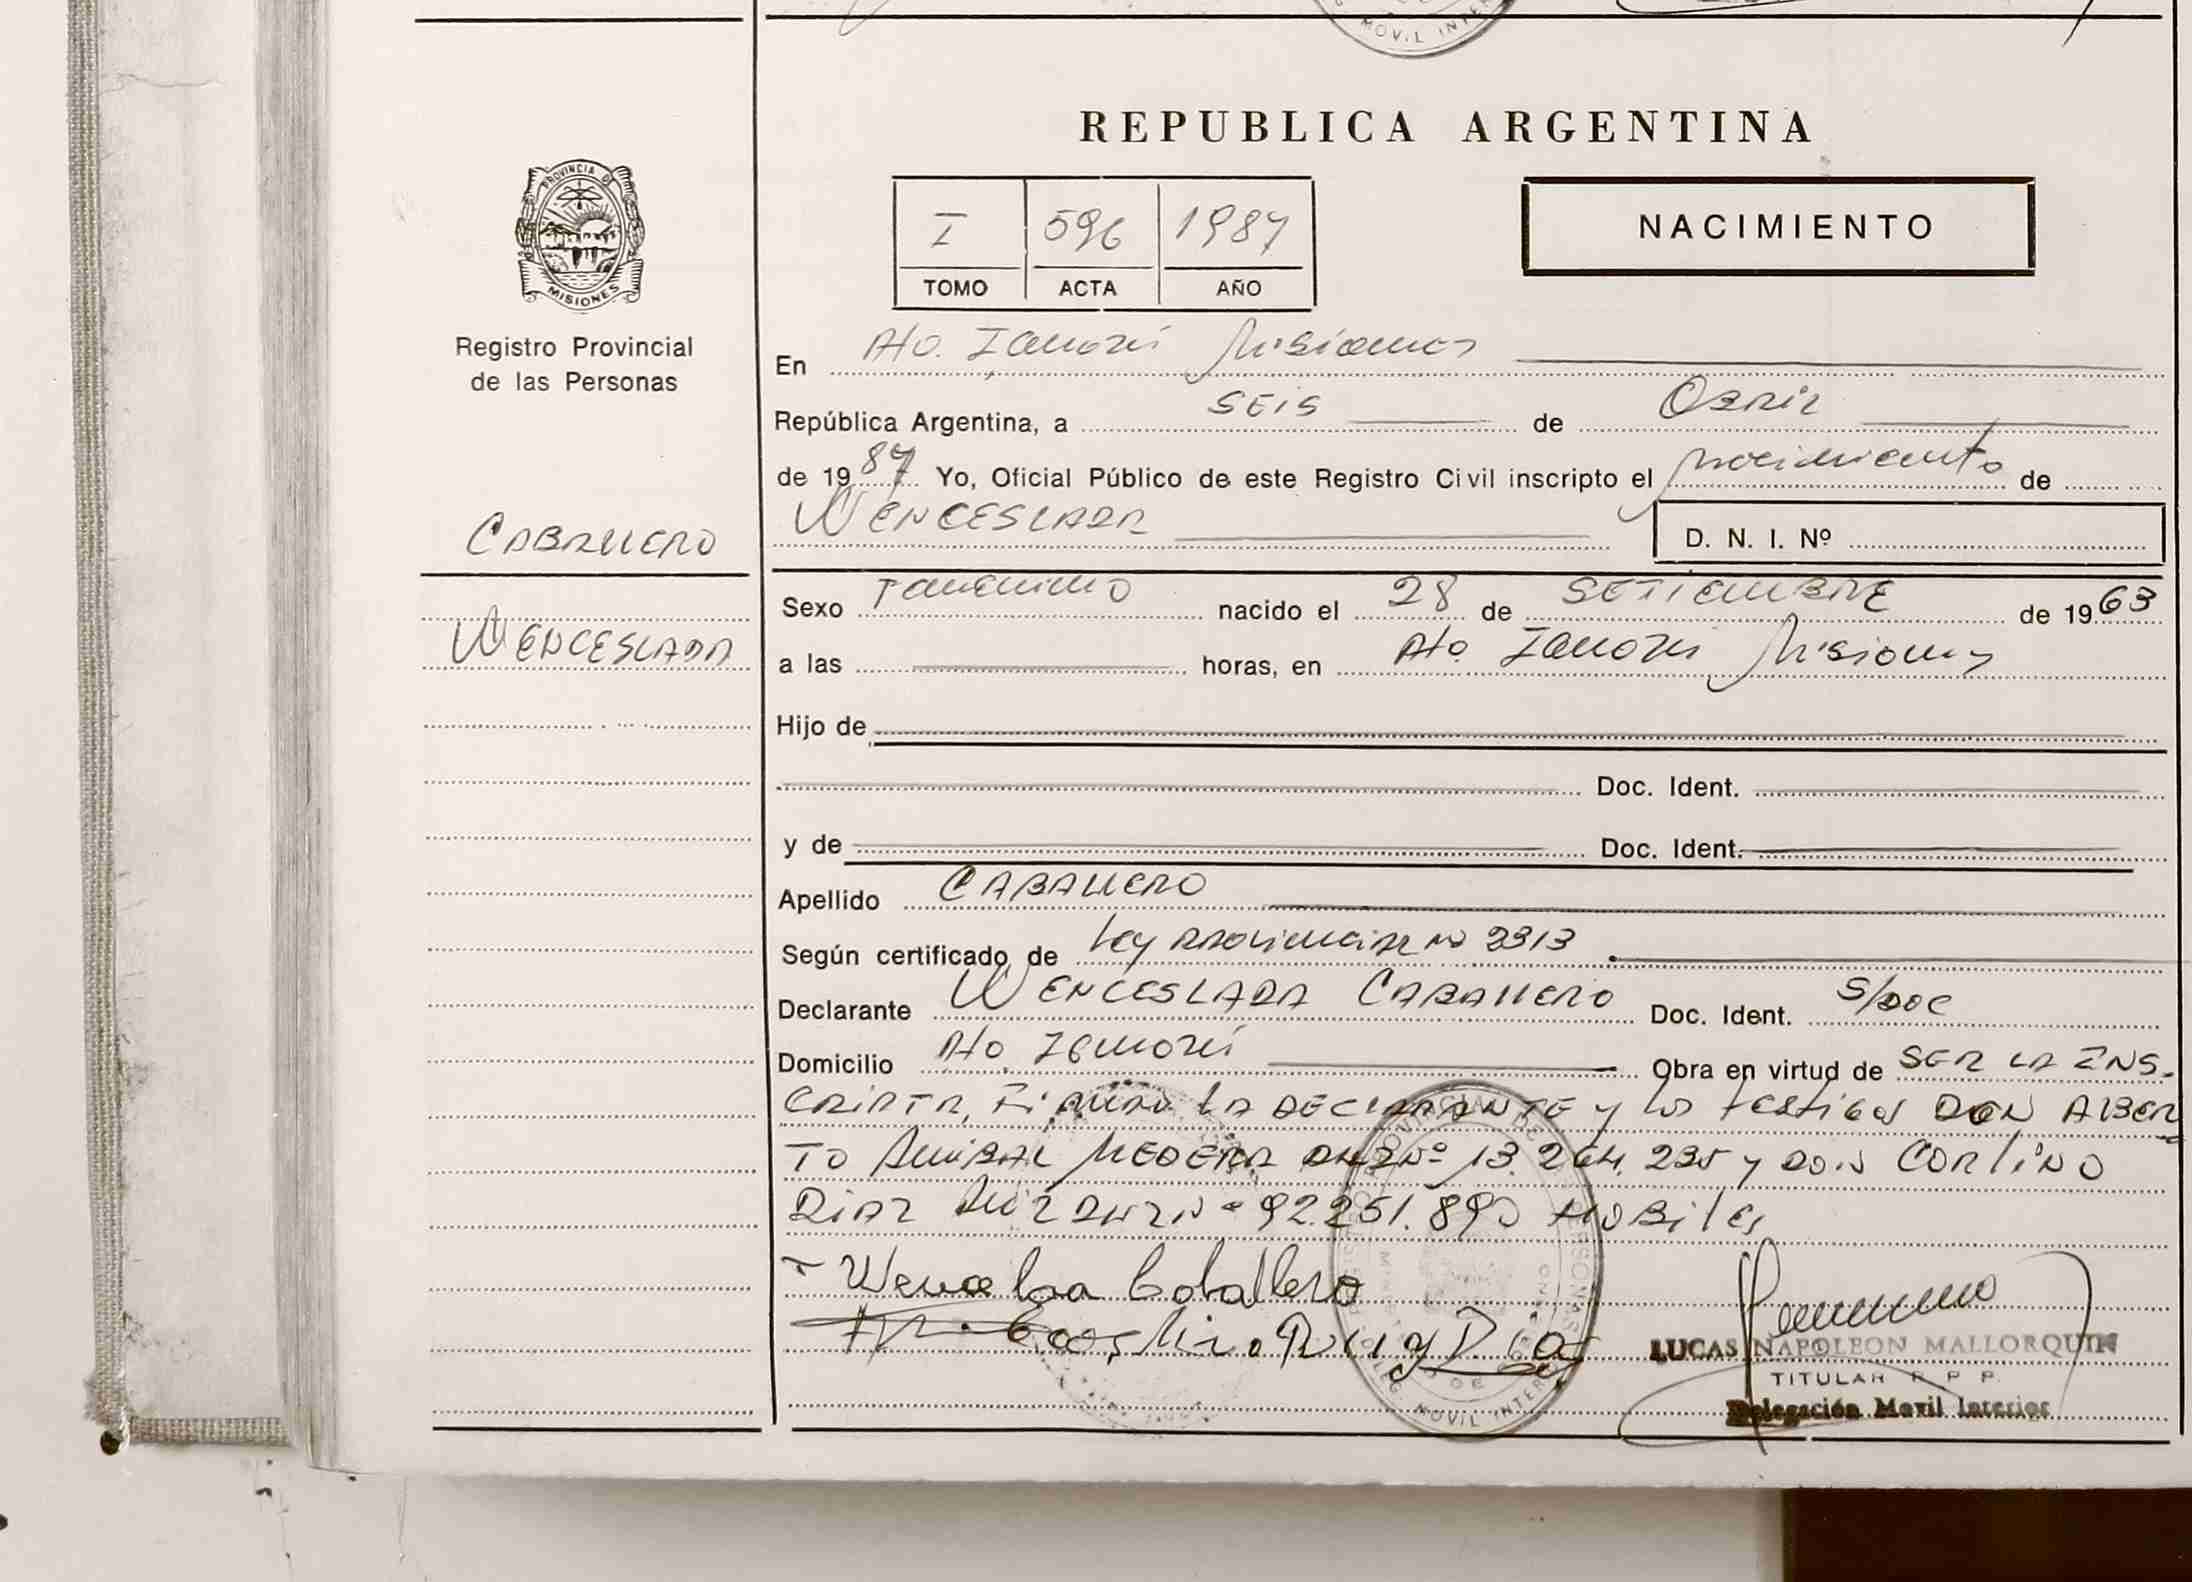 REPUBLICA ARGENTINA
PROVINCIA DE
MISIONES
Registro Provincial
de las Personas
CABALLERO
WENCESLADA
I 596 1987
TOMO ACTA AÑO
NACIMIENTO
En Pto. Misiones
República Argentina, a SEIS de Abril
de 1987 Yo, Oficial Público de este Registro Civil inscripto el nacimiento de
WENCESLADA
D. N. I. Nº
Sexo Femenino nacido el 28 de SETIEMBRE de 1963
a las horas, en Pto. Misiones
Hijo de
Doc. Ident.
y de Doc. Ident.
Apellido CABALLERO
Según certificado de Ley PROVINCIAL Nº 2313
Declarante WENCESLADA CABALLERO Doc. Ident. S/DOC
Domicilio Pto. Obra en virtud de SER LA INS-
CRIPTA, FIRMAN LA DECLARANTE y los testigos DON ALBER
TO ANIBAL DNI Nº 13.264.235 y DON
DIAZ DNI Nº 92.251.890 HABILES
Caballero
Diaz
LUCAS NAPOLEON MALLORQUIN
TITULAR R P P.
Delegación Movil Interior